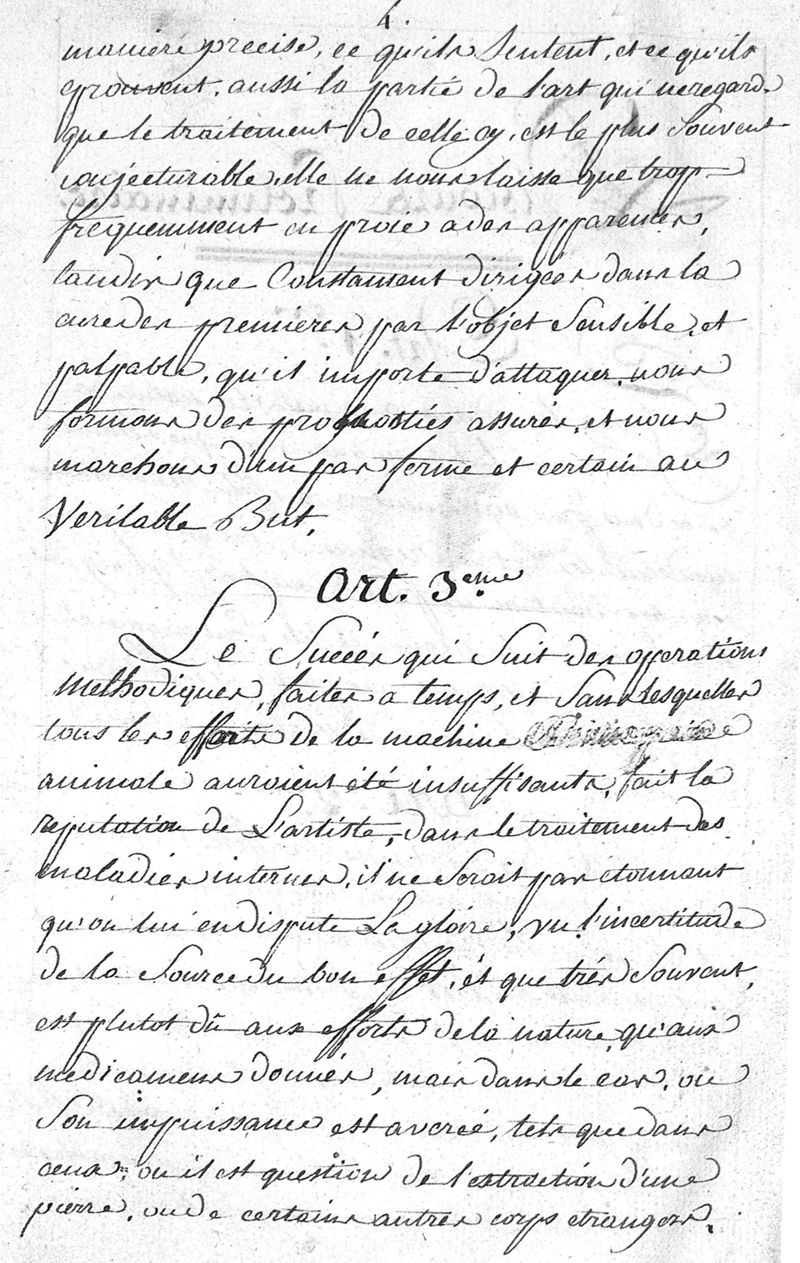 4.
maniere precise, ce qu'ils sentent, et ce qu'ils
eprouvent, aussi la partie de l'art qui ne regarde
que le traitement de celle cy, est le plus souvent
conjecturable, elle ne nous laisse que trop
frequemment en proie a des apparences,
tandis que Constament dirigées dans la
cure des premieres par l'objet sensible, et
palpable, qu'il importe d'attaquer, nous
formons des prognostics assurés, et nous
marchons d'un pas ferme et certain au
Veritable But.
Art. 3eme
Le Succés qui suit des opperations
Methodiques, faites a temps, et sans lesquelles
tous les efforts de la machine
animale auroient été insuffisants, fait la
reputation de L'artiste, dans le traitement des
maladies internes, il ne seroit pas etonnant
qu'on lui en dispute La gloire, vu l'incertitude
de la source du bon effet, et que trés souvent,
est plutot dû aux efforts de la nature, qu'aux
medicamens donnés, mais dans le cas, ou
son impuissance est averée, tels que dans
ceux, ou il est question de l'extraction d'une
pierre, ou de certains autres corps etrangers.